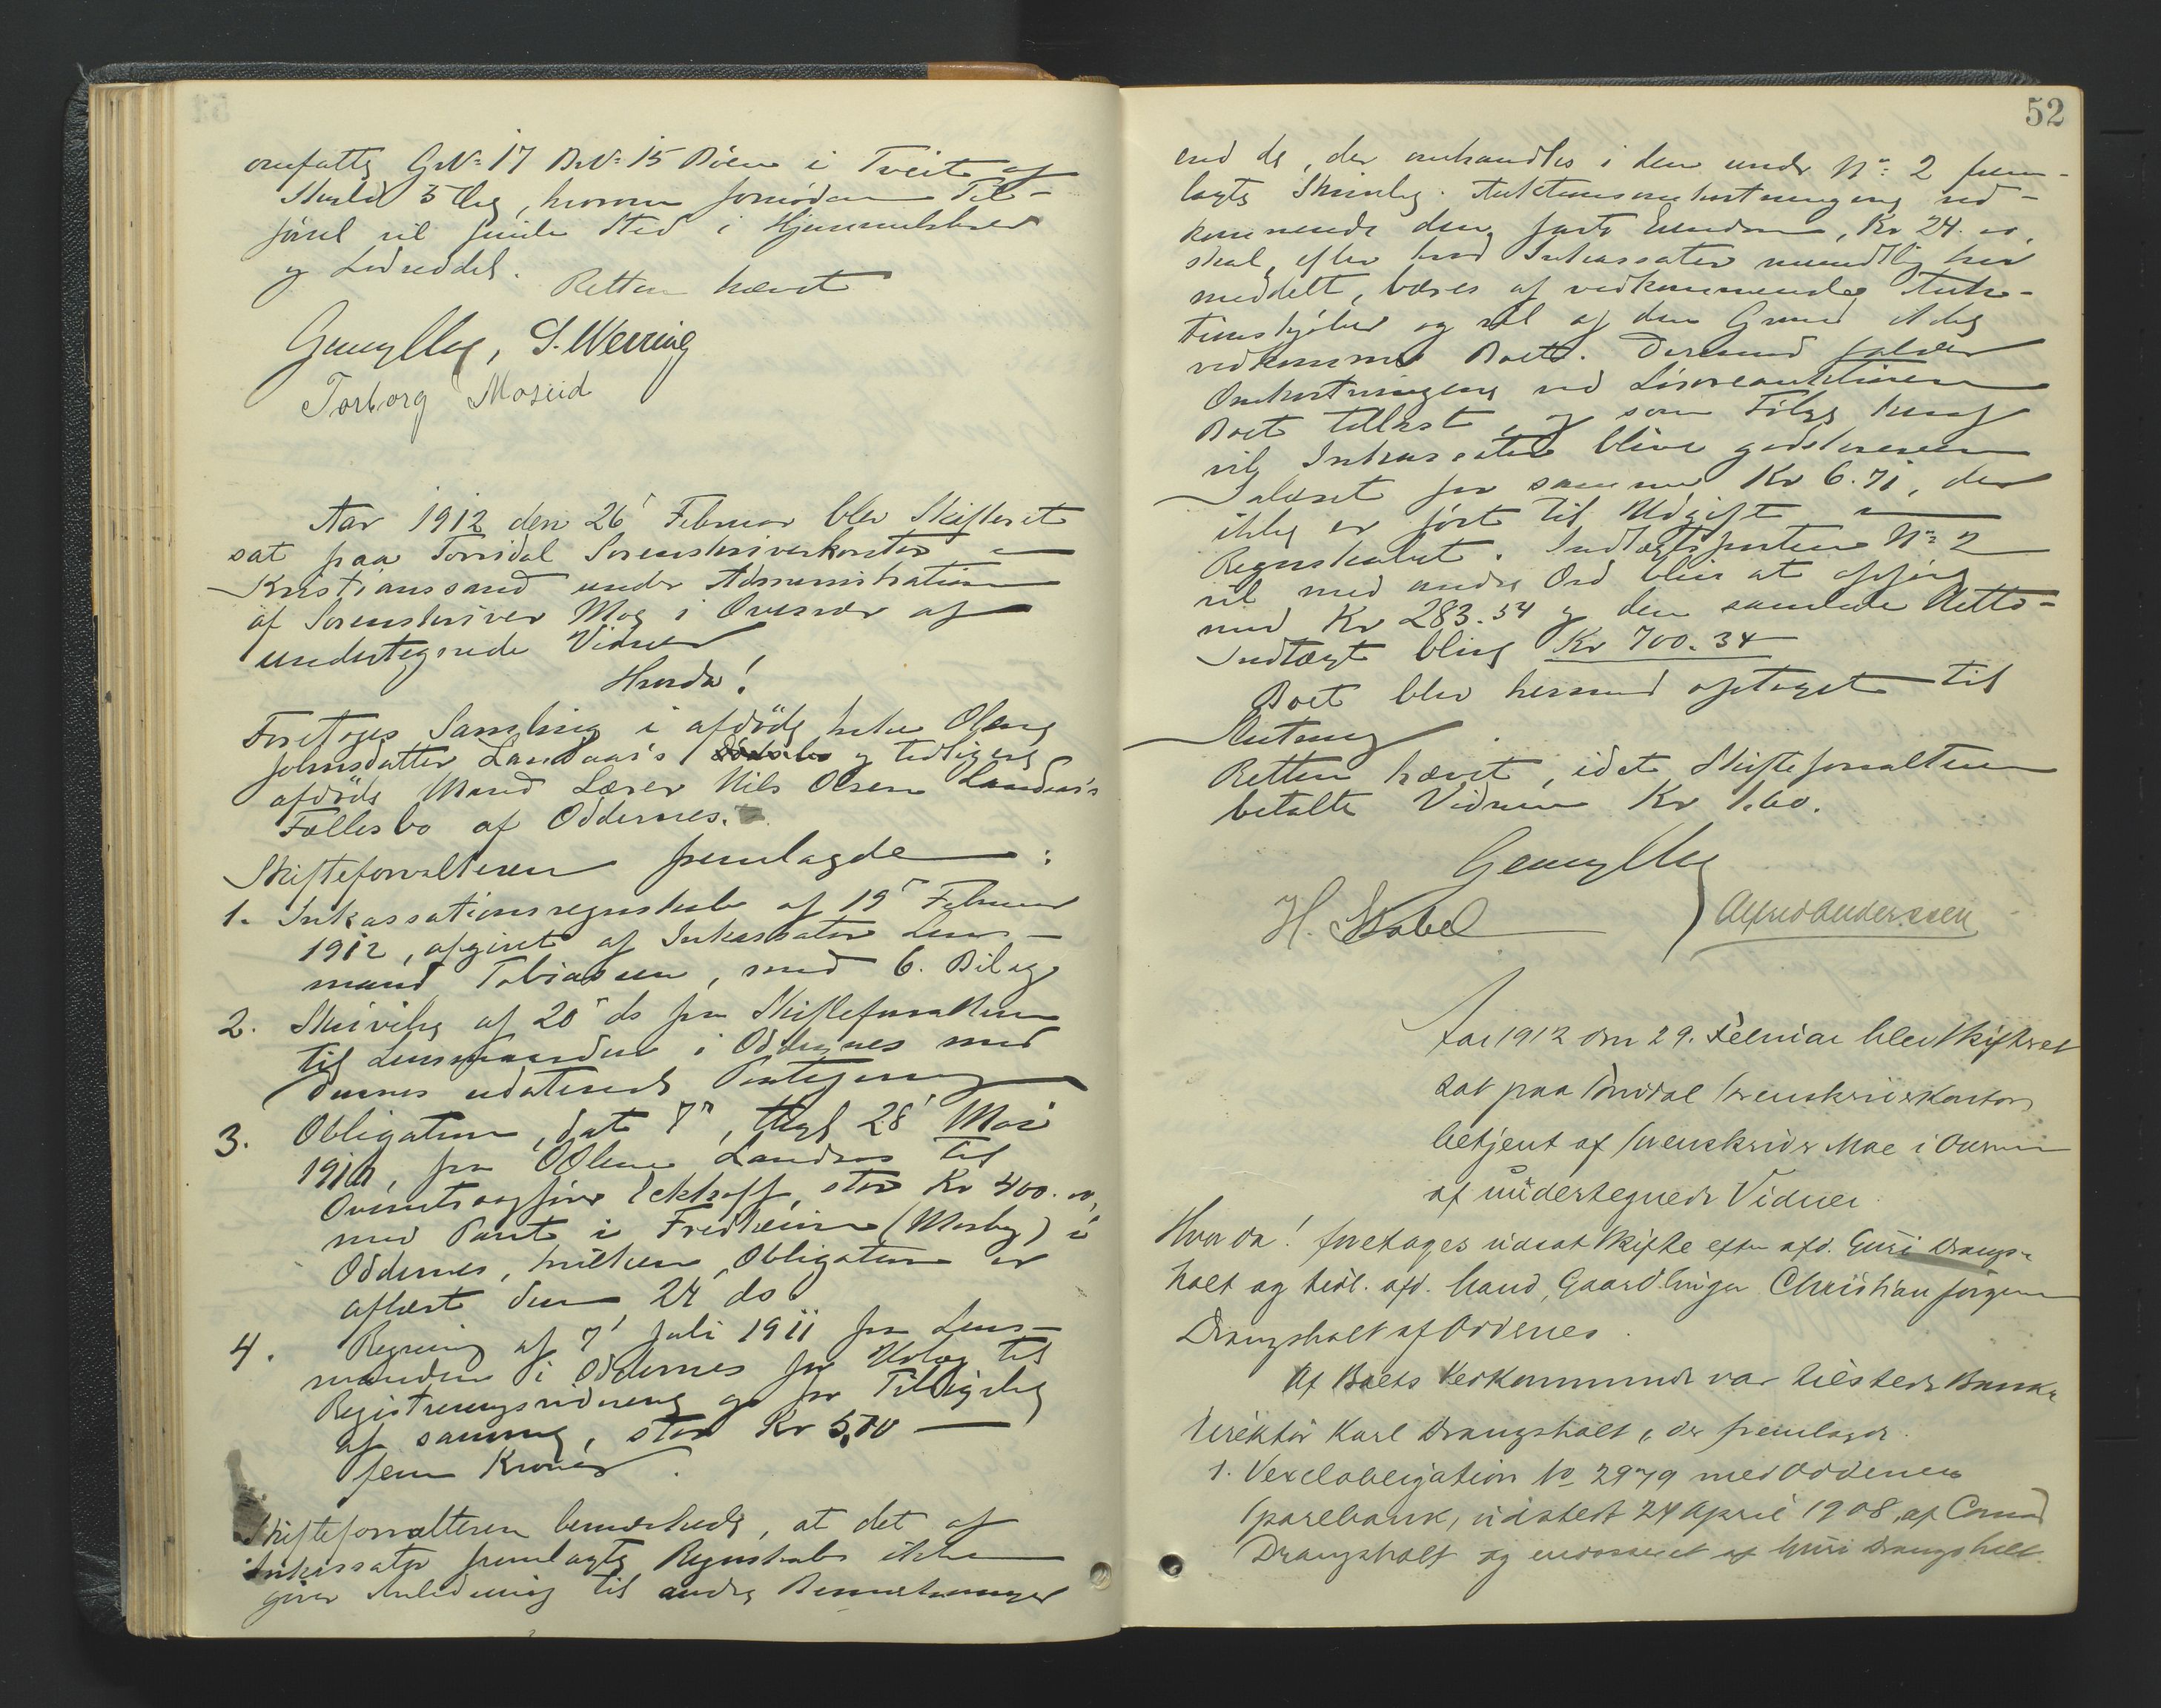 omfatte GrNo 17 BrNo 15 Böen i Tveit af
Skyld 5 Öre, hvorom fornöden Til-
försel vil finde Sted i Hjemmelsbrev
og Lodseddel.
Retten hævet
S. Werring
Torborg Moseid
Aar 1912 den 26' Februar blev Skifteret
sat paa Torridal Sorenskriverkontor i
Kristianssand under Administration
af Sorenskriver Moe i Overvær af
undertegnede Vidner
Hvorda!
Foretoges Samling i afdöde Enke Olene
Johnsdatter Landaas's Dödsbo og tidligere
afdöde Mand Lærer Nils Olsen Landaas's
Fællesbo af Oddernes.
Skifteforvalteren fremlagde:
1. Inkassationsregnskab af 19' Februar
1912, afgivet af Inkassator Lens-
mand Tobiassen, med 6 Bilag
2. Skrivelse af 20' ds fra Skifteforvalteren
til Lensmanden i Oddernes med
dennes udaterede Paategning
3. Obligation, dat 7', thgl 28' Mai
1910, fra Olene Landaas til
Overretssagförer Eckhoff, stor Kr 400.00,
med Pant i Fredheim (Mosby) i
Oddernes, hvilken Obligation er
aflæst den 24' ds
4. Regning af 7' Juli 1911 fra Lens-
manden i Oddernes for Udlæg til
Registreringsvidnerne og for Tilsigelse
af samme, stor Kr 5,00
fem Kroner.
Skifteforvalteren bemærkede, at det af
Inkassator fremlagte Regnskab ikke
giver Anledning til andre Bemærkninger
52
end de, der omhandles i den under No 2 frem-
lagte Skrivelse. Auktionsomkostningerne ved-
kommende den faste Eiendom, Kr 24.00,
skal, efter hvad Inkassator mundtlig har
meddelt, bæres af vedkommende Auk-
tionskjöber og vil af den Grund ikke
vedkomme Boet. Derimod falder
Omkostningerne ved Lösöreauktionen
Boet tillast, og som Fölge heraf
vil Inkassator blive godskreven
Salæret for samme Kr 6.71, der
ikke er fört til Udgift i
Regnskabet. Indtægtsposten No 2
vil med andre Ord blive at opföre
med Kr 283.54 og den samlede Netto-
Indtægt blive Kr 700.34
Boet blev hermed optaget til
Slutning
Retten hævet, idet Skifteforvalteren
betalte Vidnerne Kr 1.60.
H. Stabel
Alfred Anderssen
Aar 1912 den 29. Februar blev Skifteret
sat paa Torridal Sorenskriverkontor
betjent af Sorenskriver Moe i Overvær
af undertegnede Vidner.
Hvorda! foretages udsat Skifte efter afd. Guri Drangs-
holt og tidl. afd. Mand, Gaardbruger Christian Jörgensen
Drangsholt af Oddernes.
Af Boets Vedkommende var tilstede Bank-
direktör Karl Drangsholt, der fremlagde.
1. Vexelobligation No 2979 med Oddernes
Sparebank, udstedt 24 April 1908, af
Drangsholt og endosseret af Guri Drangsholt.